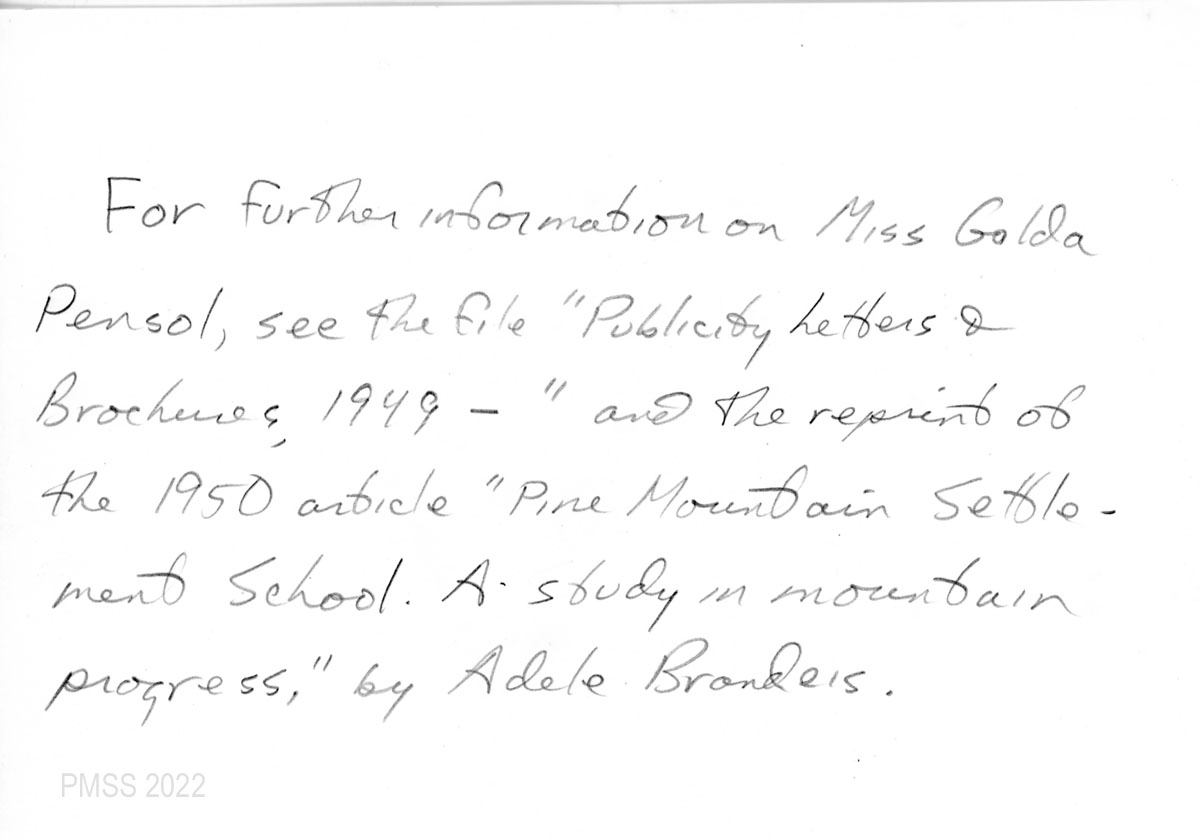 For further information on Miss Golda
Pensol, see the file "Publicity Letters &
Brochures, 1949 - " and the reprint of
the 1950 article "Pine Mountain Settle-
ment School. A study in mountain
progress," by Adele Brandeis.
PMSS 2022